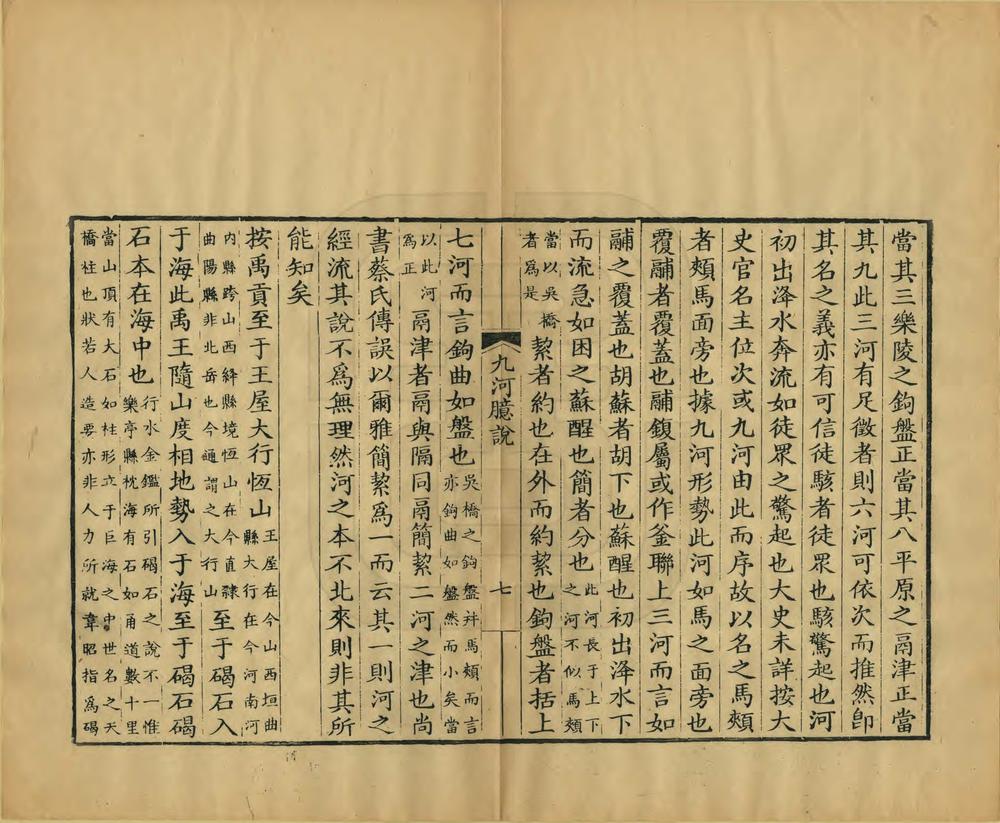 當其三樂陵之鉤盤正當其八平原之鬲津正當
其九此三河有足徵者則六河可依次而推然卽
其名之義亦有可信徒駭者徒眾也駭驚起也河
初出洚水奔流如徒眾之驚起也大史未詳按大
史官名主位次或九河由此而序故以名之馬頰
者頰馬面旁也據九河形勢此河如馬之面旁也
覆鬴者覆蓋也鬴鍑屬或作釜聯上三河而言如
鬴之覆蓋也胡蘇者胡下也蘇醒也初出洚水下
而流急如困之蘇醒也簡者分也此河長于上下
之河不似馬頰
當以吳橋
者爲是
絜者約也在外而約絜也鉤盤者括上
九河臆說
七
七河而言鉤曲如盤也吳橋之鉤盤幷馬頰而言
亦鉤曲如盤然而小矣當
以此河
爲正
鬲津者鬲與隔同鬲簡絜二河之津也尚
書蔡氏傳誤以爾雅簡絜爲一而云其一則河之
經流其說不爲無理然河之本不北來則非其所
能知矣
按禹貢至于王屋大行恆山王屋在今山西垣曲
縣大行在今河南河
內縣跨山西絳縣境恆山在今直隸
曲陽縣非北岳也今通謂之大行山
至于碣石入
于海此禹王隨山度相地勢入于海至于碣石碣
石本在海中也行水金鑑所引碣石之說不一惟
樂亭縣枕海有石如甬道數十里
當山頂有大石如柱形立于巨海之中世名之天
橋柱也狀若人造要亦非人力所就韋昭指爲碣